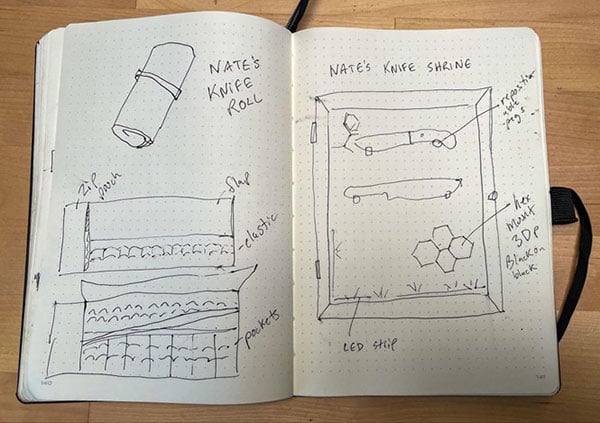 NATE'S
KNIFE
ROLL
ZIP
pouch
flap
elastic
pockets
140
NATE'S KNIFE SHRINE
reposition-
able
pegs
hex
Mount
3DP
Black on
black
LED STRIP
141